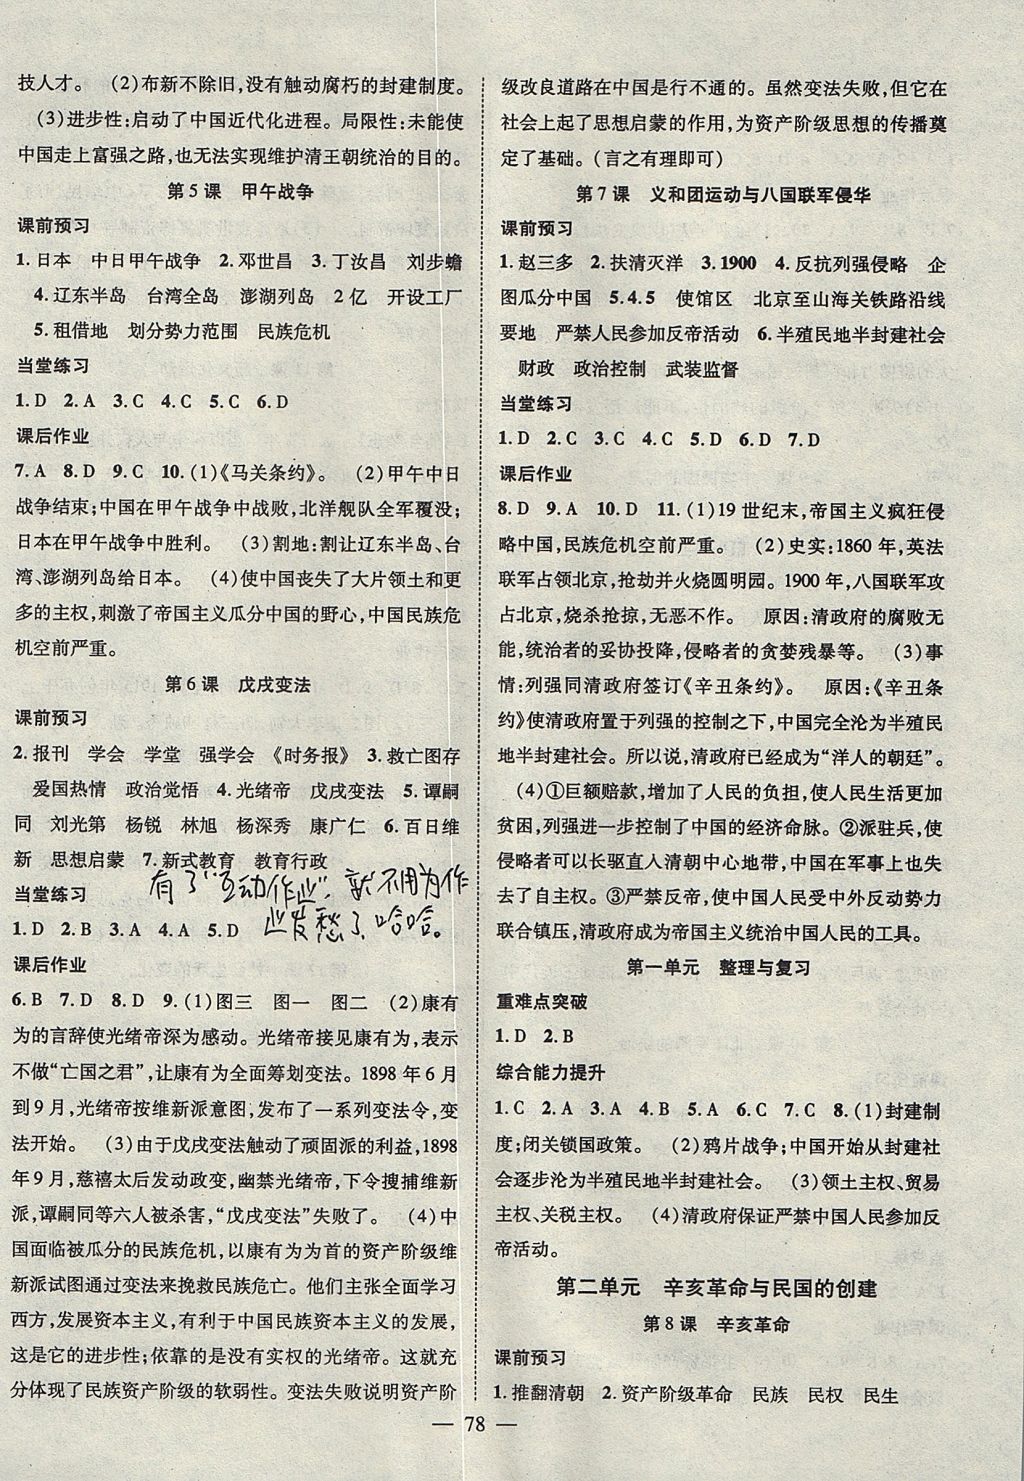 技人才。　(2)布新不除旧,没有触动腐朽的封建制度。
(3)进步性:启动了中国近代化进程。局限性:未能使
中国走上富强之路,也无法实现维护清王朝统治的目的。
第5课　甲午战争
课前预习
1.日本　中日甲午战争　2.邓世昌　3.丁汝昌　刘步蟾
4.辽东半岛　台湾全岛　澎湖列岛　2亿　开设工厂
5.租借地　划分势力范围　民族危机
当堂练习
1.D　2.A　3.C　4.C　5.C　6.D
课后作业
7.A　8.D　9.C　10.(1)《马关条约》。　(2)甲午中日
战争结束;中国在甲午战争中战败,北洋舰队全军覆没;
日本在甲午战争中胜利。　(3)割地:割让辽东半岛、台
湾、澎湖列岛给日本。　(4)使中国丧失了大片领土和更
多的主权,刺激了帝国主义瓜分中国的野心,中国民族危
机空前严重。
第6课　戊戌变法
课前预习
2.报刊　学会　学堂　强学会　《时务报》　3.救亡图存
爱国热情　政治觉悟　4.光绪帝　戊戌变法　5.谭嗣
同　刘光第　杨锐　林旭　杨深秀　康广仁　6.百日维
新　思想启蒙　7.新式教育　教育行政
有了“互动作业”,就不用为作
当堂练习
业发愁了,哈哈。
1.D　2.B　3.A　4.A　5.D
课后作业
6.B　7.D　8.D　9.(1)图三　图一　图二　(2)康有
为的言辞使光绪帝深为感动。光绪帝接见康有为,表示
不做“亡国之君”,让康有为全面筹划变法。1898年6月
到9月,光绪帝按维新派意图,发布了一系列变法令,变
法开始。　(3)由于戊戌变法触动了顽固派的利益,1898
年9月,慈禧太后发动政变,幽禁光绪帝,下令搜捕维新
派,谭嗣同等六人被杀害,“戊戌变法”失败了。　(4)中
国面临被瓜分的民族危机,以康有为为首的资产阶级维
新派试图通过变法来挽救民族危亡。他们主张全面学习
西方,发展资本主义,有利于中国民族资本主义的发展,
这是它的进步性;依靠的是没有实权的光绪帝。这就充
分体现了民族资产阶级的软弱性。变法失败说明资产阶
级改良道路在中国是行不通的。虽然变法失败,但是它在
社会上起了思想启蒙的作用,为资产阶级思想的传播奠
定了基础。(言之有理即可)
第7课　义和团运动与八国联军侵华
课前预习
1.赵三多　2.扶清灭洋　3.1900　4.反抗列强侵略　企
图瓜分中国　5.4.5　使馆区　北京至山海关铁路沿线
要地　严禁人民参加反帝活动　6.半殖民地半封建社会
财政　政治控制　武装监督
当堂练习
1.D　2.C　3.C　4.C　5.B　6.D　7.D
课后作业
8.D　9.A　10.D　11.(1)19世纪末,帝国主义疯狂侵
略中国,民族危机空前严重。　(2)史实:1860年,英法
联军占领北京,抢劫并火烧圆明园。1900年,八国联军攻
占北京,烧杀抢掠,无恶不作。　原因:清政府的腐败无
能,统治者的妥协投降,侵略者的贪婪残暴等。　(3)事
情:列强同清政府签订《辛丑条约》。　原因:《辛丑条
约》使清政府置于列强的控制之下,中国完全沦为半殖民
地半封建社会。所以说,清政府已经成为“洋人的朝廷”。
(4)①巨额赔款,增加了人民的负担,使人民生活更加
贫困,列强进一步控制了中国的经济命脉。②派驻兵,使
侵略者可以长驱直入清朝中心地带,中国在军事上也失
去了自主权。③严禁反帝,使中国人民受中外反动势力
联合镇压,清政府成为帝国主义统治中国人民的工具。
第一单元　整理与复习
重难点突破
1.D　2.B
综合能力提升
1.C　2.A　3.A　4.B　5.A　6.C　7.C　8.(1)封建制
度;闭关锁国政策。　(2)鸦片战争;中国开始从封建社
会逐步沦为半殖民地半封建社会。　(3)领土主权、贸易
主权、关税主权。　(4)清政府保证严禁中国人民参加反
帝活动。
第二单元　辛亥革命与民国的创建
第8课　辛亥革命
课前预习
1.推翻清朝　2.资产阶级革命　民族　民权　民生
— 78 —